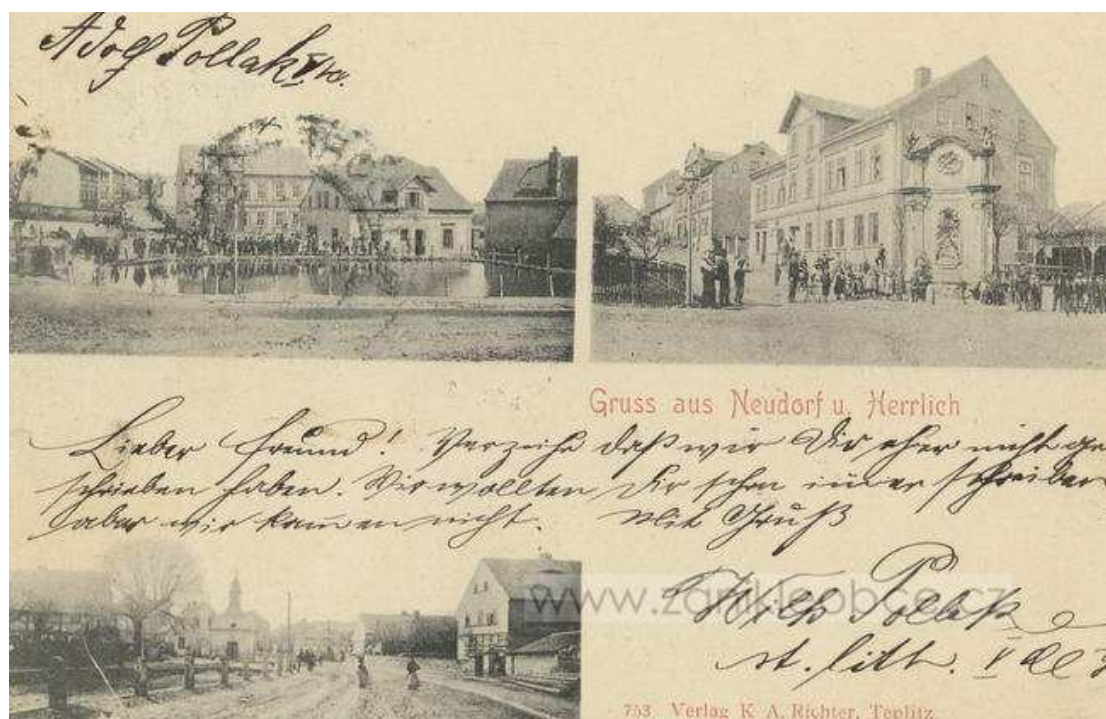 Adolf Pollak
Gruss aus Neudorf u. Herrlich
Lieber Freund! Verzeihe daß wir Dir eher nicht ge-
schrieben haben. Wir wollten Dir schon immer schreiben
aber wir kamen nicht. Mit Gruß
www.zanikleobce.cz
Wilh Pollak
st. litt. V
753 Verlag K. A. Richter, Teplitz